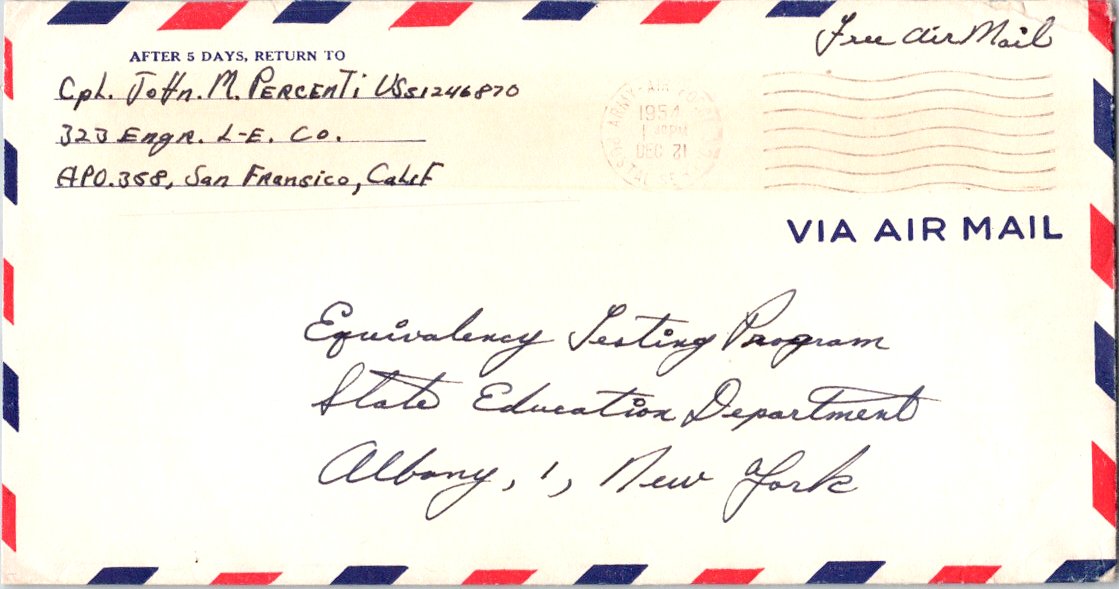 Free Air Mail
AFTER 5 DAYS, RETURN TO
Cpl. John. M. PERCENTi US51246870
323 Engr. L-E. Co.
APO.358, San Fransico, Calif
ARMY-AIR FO
1954
1 PM
DEC 21
VIA AIR MAIL
Equivalency Testing Program
State Education Department
Albany, 1, New York